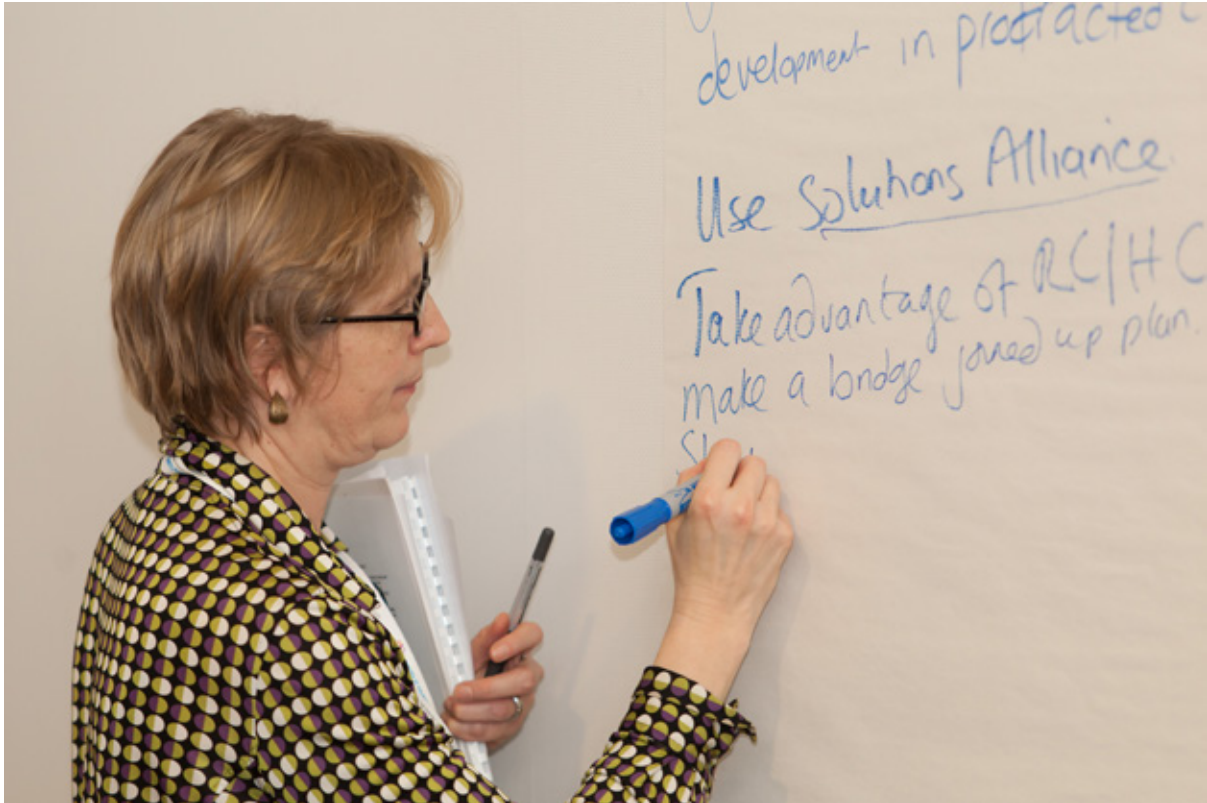 development in protracted
Use Solutions Alliance
Take advantage of RC/HC
make a bridge joined up plan.